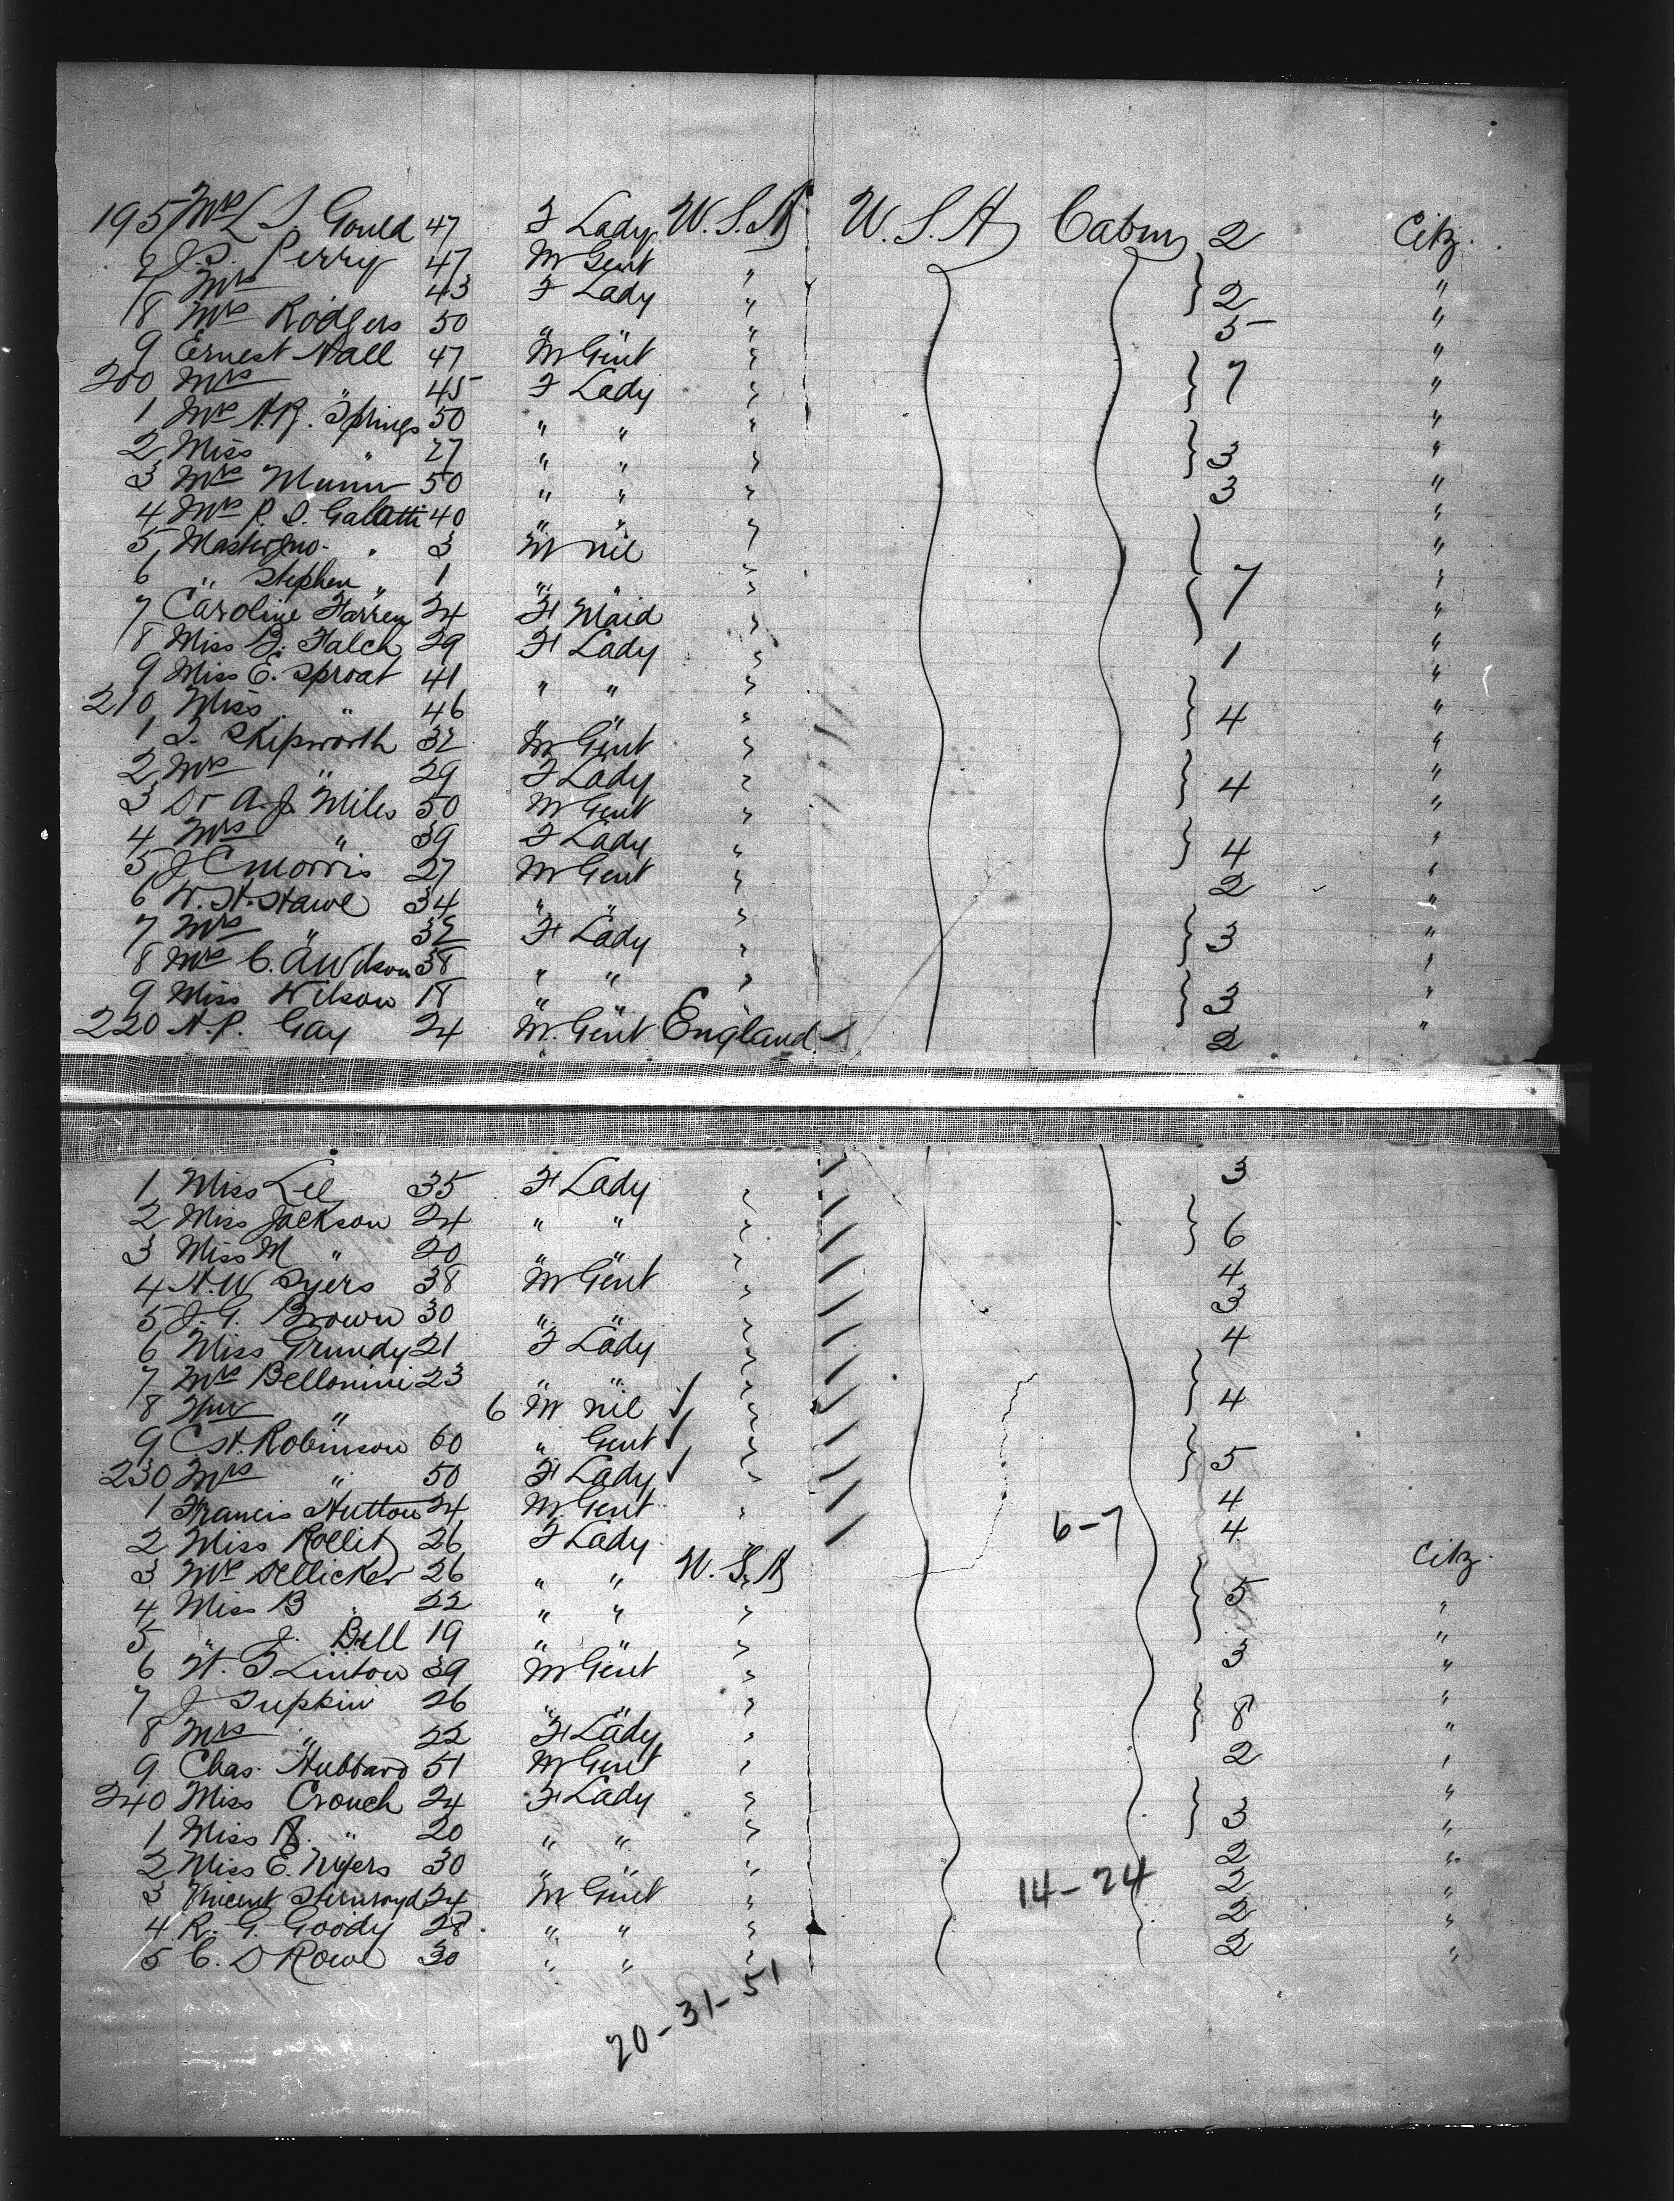 195 Mrs L S. Gould 47 F Lady U.S.A U.S.A Cabin 2 Citz.
6 J.S. Perry 47 M Gent " "
7 Mrs " 43 F Lady " 2 "
8 Mrs Rodgers 50 " " " 5 "
9 Ernest Hall 47 M Gent " "
200 Mrs " 45 F Lady " 7 "
1 Mrs A.R. Springs 50 " " " "
2 Miss " 27 " " " 3 "
3 Mrs Munn 50 " " " 3 "
4 Mrs P. S. Galatti 40 " " " "
5 Master Jno. " 3 M nil " "
6 " Stephen " 1 " " " 7 "
7 Caroline Farren 24 F Maid " "
8 Miss B. Falck 29 F Lady " 1 "
9 Miss E. Sproat 41 " " " "
210 Miss " 46 " " " 4 "
1 S. Skipworth 32 M Gent " "
2 Mrs " 29 F Lady " 4 "
3 Dr A.J. Miles 50 M Gent " "
4 Mrs " 39 F Lady " 4 "
5 J C Morris 27 M Gent " 2 "
6 W. H. Hawe 34 " " " "
7 Mrs " 32 F Lady " 3 "
8 Mrs C. A Wilson 38 " " " "
9 Miss Wilson 18 " " " 3 "
220 A.P. Gay 24 M. Gent England 2 "
1 Miss Lee 35 F Lady " 3
2 Miss Jackson 24 " " "
3 Miss M " 20 " " " 6
4 H.W Syers 38 M Gent " 4
5 J. G. Brown 30 " " " 3
6 Miss Grundy 21 F Lady " 4
7 Mrs Bellomini 23 " " "
8 " 6 M nil " 4
9 C.H. Robinson 60 " Gent "
230 Mrs " 50 F Lady " 5
1 Francis Hutton 24 M Gent " 4
2 Miss Rollit 26 F Lady " 6-7 4
3 Mrs Dellicker 26 " " U.S.A Citz.
4 Miss B " 22 " " " 5 "
5 " J. Bell 19 " " " "
6 W. F Linton 39 M Gent " 3 "
7 J Tupkin 26 " " " "
8 Mrs " 22 F Lady " 8 "
9 Chas. Hubbard 51 M Gent " 2 "
240 Miss Crouch 24 F Lady " "
1 Miss A. " 20 " " " 3 "
2 Miss E. Myers 30 " " " 2 "
3 Vincent Sternroyd 24 M Gent " 14-24 2 "
4 R. G. Goody 28 " " " 2 "
5 C. D Rowe 30 " " " 2 "
20-31-51